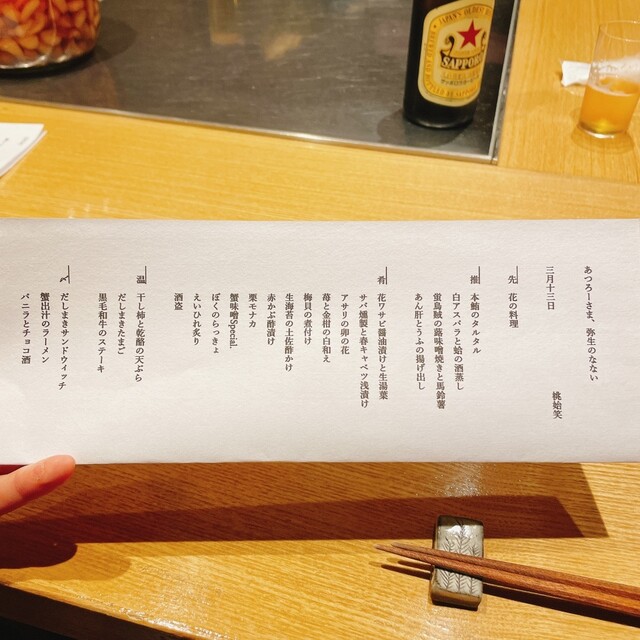 あつろーさま、弥生のなない
三月十三日
桃始笑
先 花の料理
推 本鮪のタルタル
白アスパラと蛤の酒蒸し
蛍烏賊の蕗味噌焼きと馬鈴薯
あん肝とうふの揚げ出し
肴 花ワサビ醤油漬けと生湯葉
サバ燻製と春キャベツ浅漬け
アサリの卯の花
苺と金柑の白和え
梅貝の煮付け
生海苔の土佐酢かけ
赤かぶ酢漬け
栗モナカ
蟹味噌Special.
ぼくのらっきょ
えいひれ炙り
酒盗
温 干し柿と乾酪の天ぷら
だしまきたまご
黒毛和牛のステーキ
〆 だしまきサンドウィッチ
蟹出汁のラーメン
バニラとチョコ酒
JAPAN'S OLDEST
SAPPORO